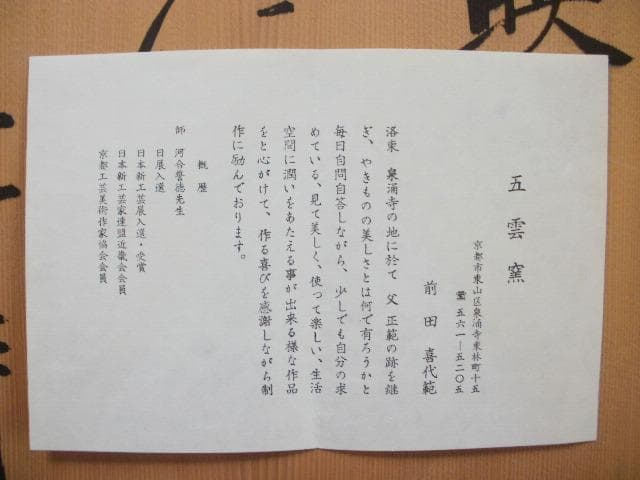 五雲窯
京都市東山区泉涌寺東林町十五
☎ 五六一―五二〇五
前田喜代範
洛東 泉涌寺の地に於て 父 正範の跡を継
ぎ、やきものの美しさとは何で有ろうかと
毎日自問自答しながら、少しでも自分の求
めている、見て美しく、使って楽しい、生活
空間に潤いをあたえる事が出来る様な作品
をと心がけて、作る喜びを感謝しながら制
作に励んでおります。
概歴
師 河合誉徳先生
日展入選
日本新工芸展入選・受賞
日本新工芸家連盟近畿会会員
京都工芸美術作家協会会員